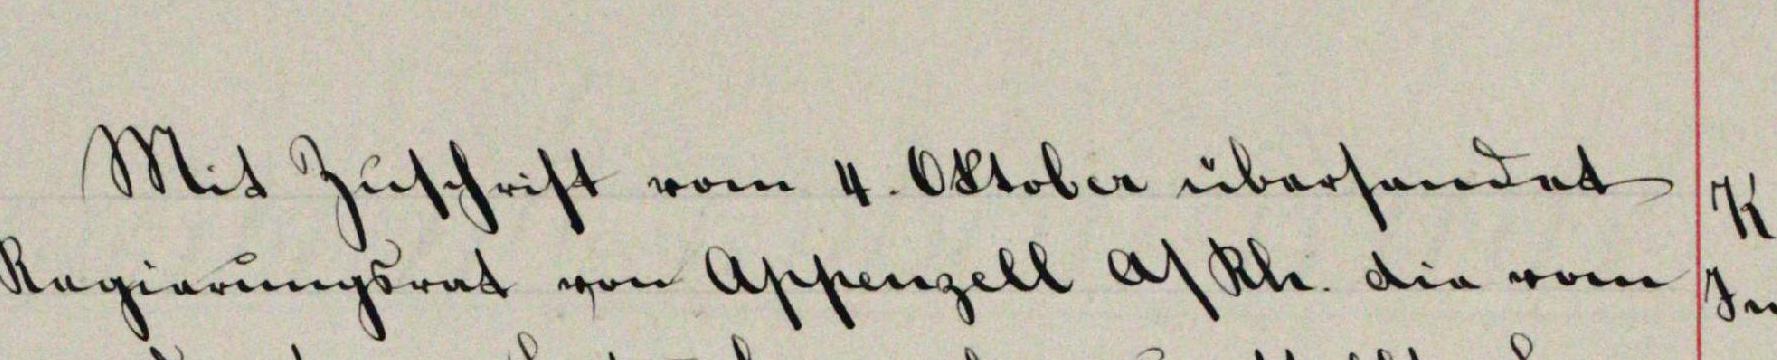 Mit Zuschrift vom 4. Oktober übersendet
Regierungsrat von Appenzell A/Rh. die vom